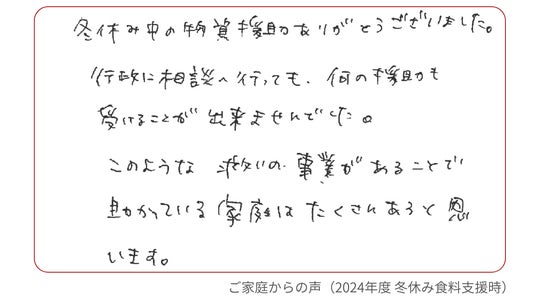 冬休み中の物資援助ありがとうございました。
行政に相談へ行っても、何の援助も
受けることが出来ませんでした。
このような救いの事業があることで
助かっている家庭はたくさんあると思
います。
ご家庭からの声（2024年度 冬休み食料支援時）